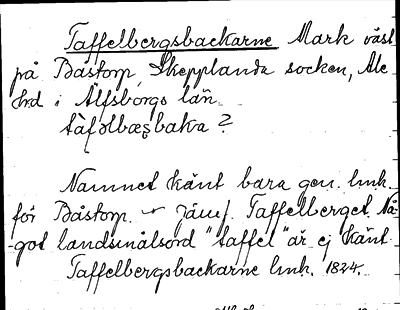 Taffelbergsbackarne Mark väst
på Båstorp, Skepplanda socken, Ale
hrd i Älfsborgs län
tàfəlbæʂbaka?
Namnet känt bara gen. lmk.
för Båstorp. — Jämf. Taffelberget. Nå-
-got landsmålsord "taffel" är ej känt.
Taffelbergsbackarne lmk. 1824.